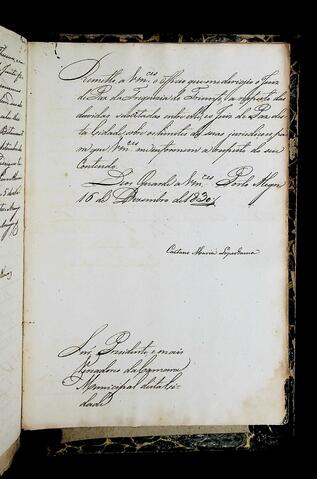 Remetto a Vm.ces o Officio que me dirigio o Juiz
de Paz da Freguezia do Triunfo, a respeito das
duvidas suscitadas entre elle, e o Juiz de Paz des
ta Cidade, sobre os limites de suas jurisdicoens pa
ra que Vm.ces me informem a respeito do seu
Contendo.
Deos Guarde a Vm.ces Porto Alegre
16 de Dezembro de 1830
Caetano Maria Lopes Gama
Snr. Presidente, e mais
Vereadores da Camara
Municipal desta Ci
dade